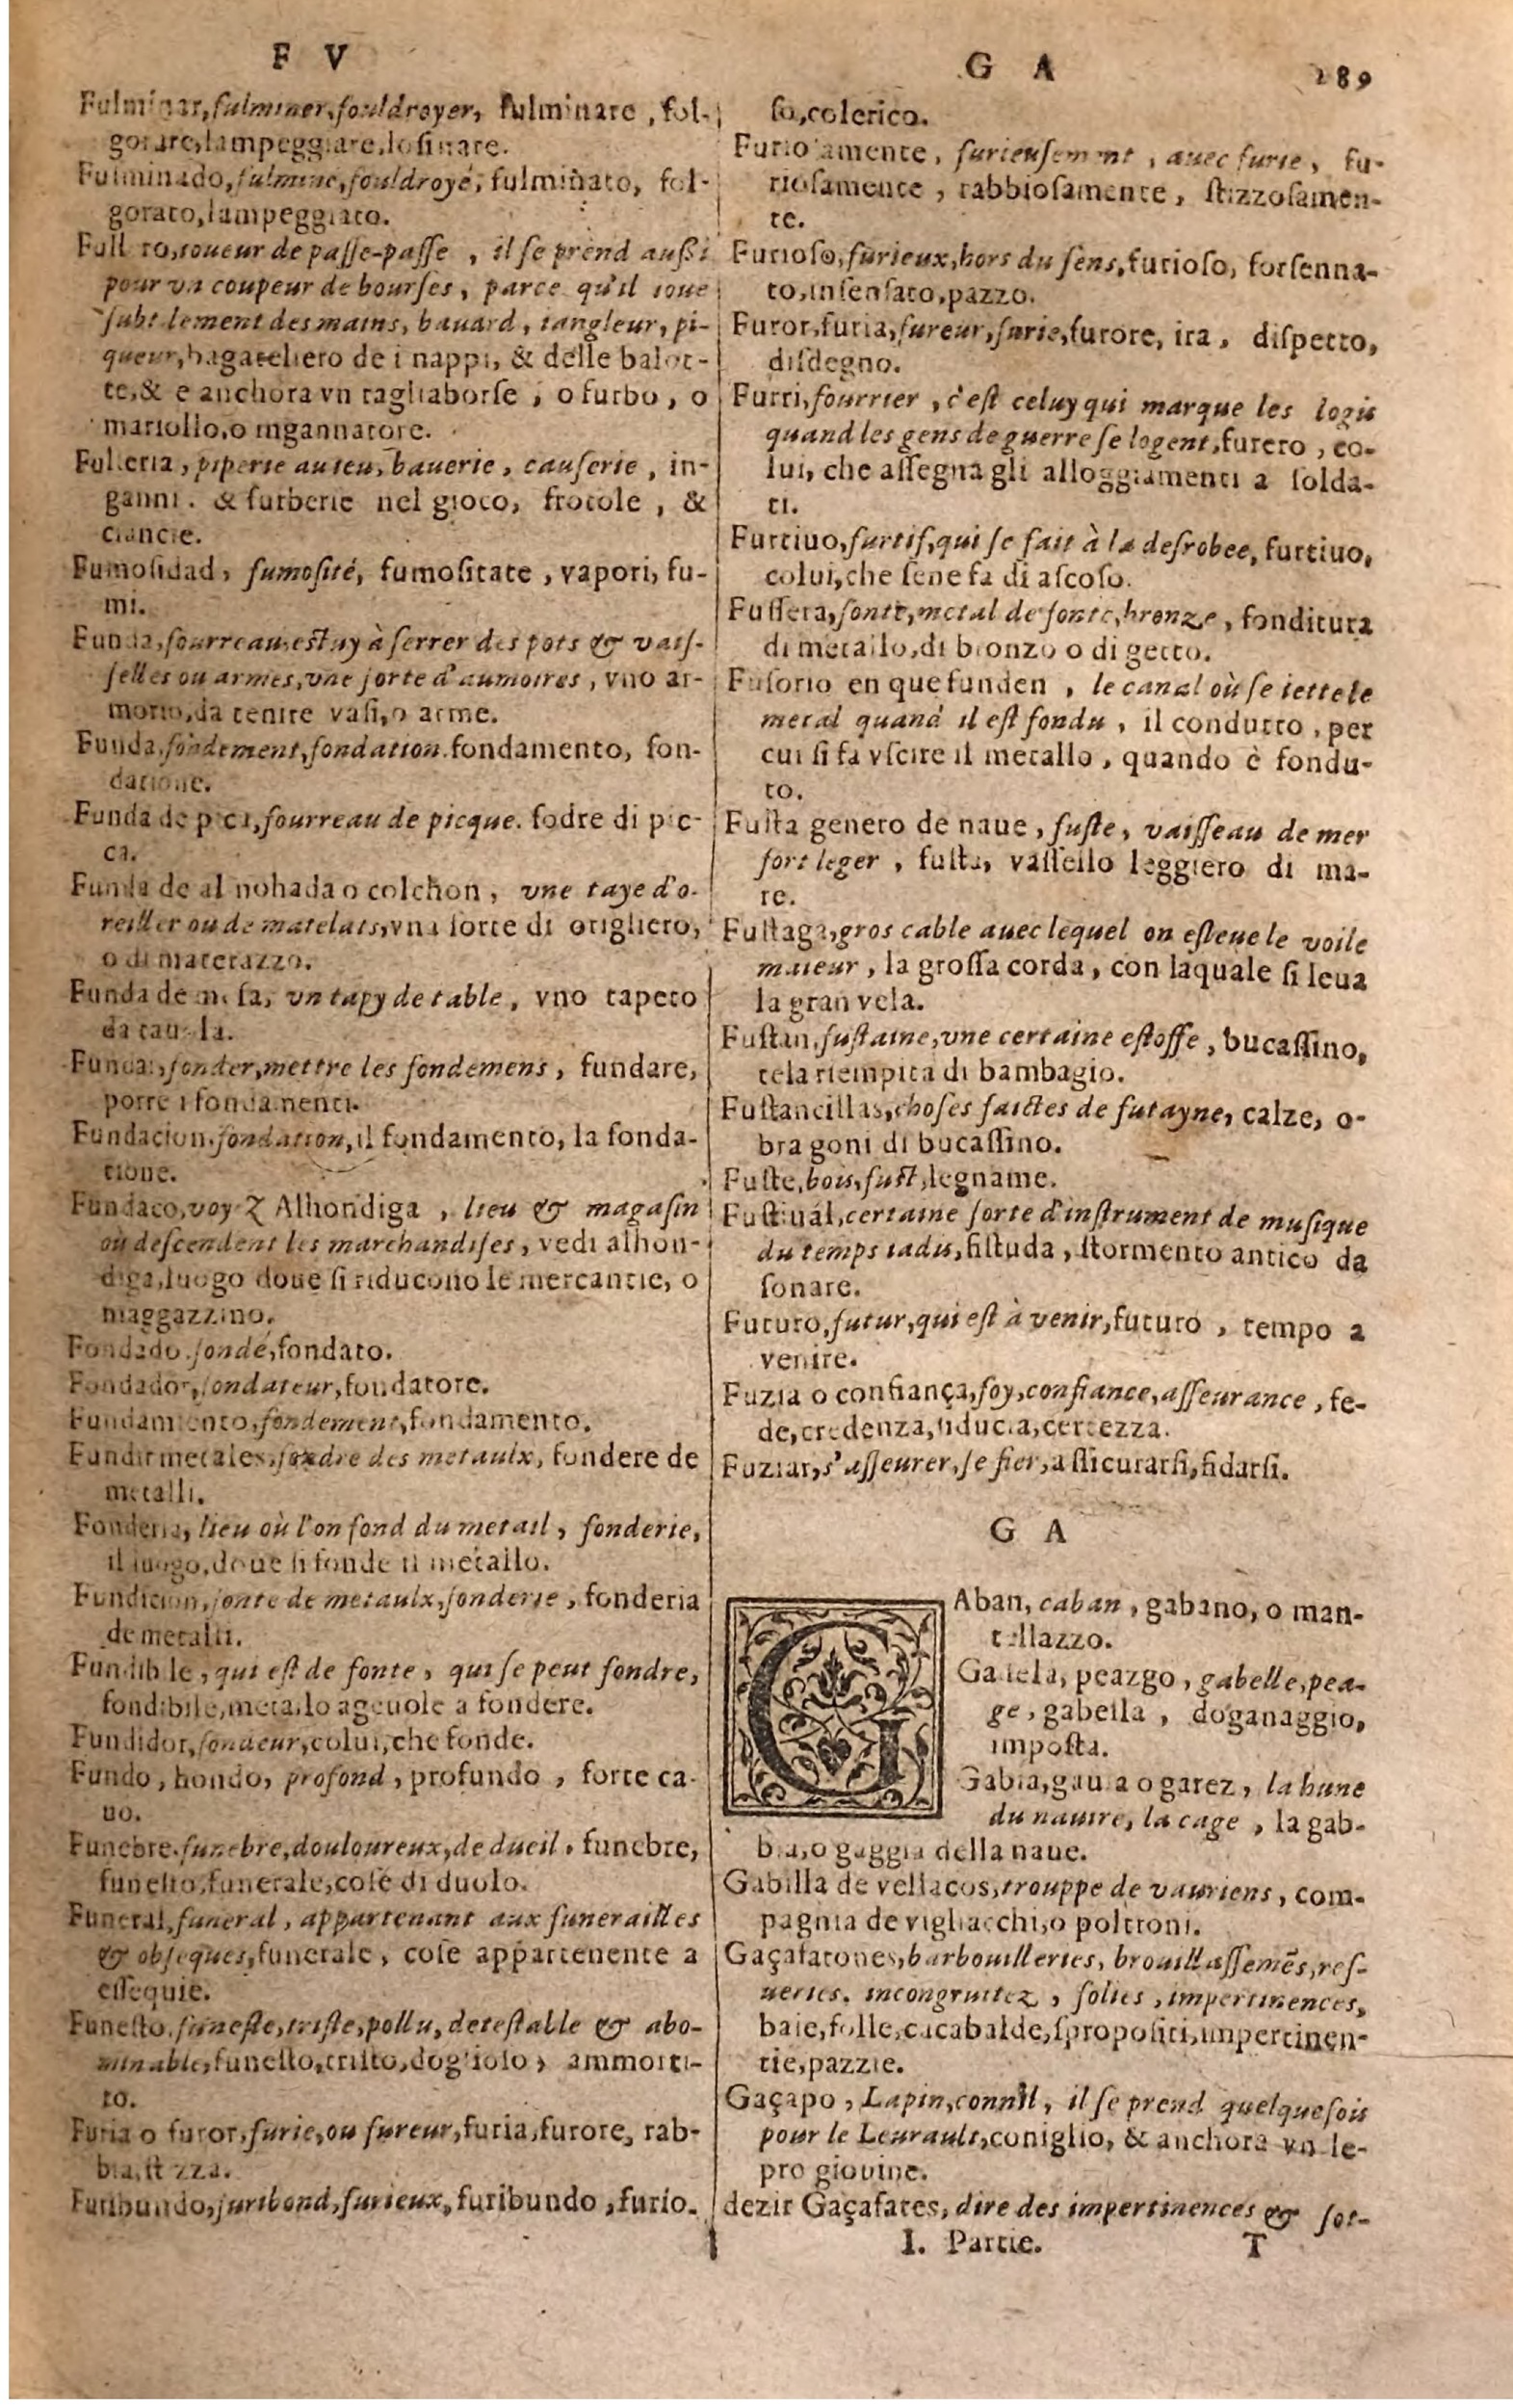 F V
Fulminar, fulminer, fouldroyer, fulminare, fol-
gorare, lampeggiare, losinare.
Fulminado, fulminé, fouldroyé, fulminato, fol-
gorato, lampeggiato.
Full ro, ioueur de paſſe-paſſe, il ſe prend außi
pour vn coupeur de bourſes, parce qu'il ioue
ſubt lement des mains, bauard, iangleur, pi-
queur, bagatehero de i nappi, & delle balot-
te, & e anchora vn tagliaborſe, o furbo, o
mariollo, o ingannatore.
Fulleria, piperie au ieu, bauerie, cauſerie, in-
ganni. & furberie nel gioco, frotole, &
ciancie.
Fumoſidad, fumoſité, fumoſitate, vapori, fu-
mi.
Funda, fourreau, eſtuy à ſerrer des pots & vaiſ-
ſelles ou armes, vne ſorte d'aumoires, vno ar-
morio, da tenire vaſi, o arme.
Funda, fondement, fondation. fondamento, fon-
datione.
Funda de pica, fourreau de picque. fodre di pic-
ca.
Funda de al nohada o colchon, vne taye d'o-
reiller ou de matelats, vna ſorte di origliero,
o di materazzo.
Funda de meſa, vn tapy de table, vno tapeto
da tauola.
Fundar, fonder, mettre les fondemens, fundare,
porre i fondamenti.
Fundacion, fondation, il fondamento, la fonda-
tione.
Fundaco, voy z Alhondiga, lieu & magaſin
où deſcendent les marchandiſes, vedi alhon-
diga, luogo doue ſi riducono le mercantie, o
maggazzino.
Fondado, fondé, fondato.
Fondador, fondateur, fondatore.
Fundamiento, fondement, fondamento.
Fundir metales, fondre des metaulx, fondere de
metalli.
Fonderia, lieu où l'on fond du metail, fonderie,
il luogo, doue ſi fonde il metallo.
Fundicion, fonte de metaulx, fonderie, fonderia
de metalli.
Fundible, qui eſt de fonte, qui ſe peut fondre,
fondibile, metallo ageuole a fondere.
Fundidor, fondeur, colui, che fonde.
Fundo, hondo, profond, profundo, forte ca-
uo.
Funebre. funebre, douloureux, de dueil, funebre,
funeſto, funerale, coſe di duolo.
Funeral, funeral, appartenant aux funerailles
& obſeques, funerale, coſe appartenente a
eſſequie.
Funeſto. funeſte, triſte, pollu, deteſtable & abo-
minable, funeſto, triſto, doglioſo, ammorti-
to.
Furia o furor, furie, ou fureur, furia, furore, rab-
bia, ſtizza.
Furibundo, furibond, furieux, furibundo, furio-
G A 289
ſo, colerico.
Furioſamente, furieuſement, auec furie, fu-
rioſamente, rabbioſamente, ſtizzoſamen-
te.
Furioſo, furieux, hors du ſens, furioſo, forſenna-
to, inſenſato, pazzo.
Furor, furia, fureur, furie, furore, ira, diſpetto,
diſdegno.
Furri, fourrier, c'eſt celuy qui marque les logis
quand les gens de guerre ſe logent, furero, co-
lui, che aſſegna gli alloggiamenti a ſolda-
ti.
Furtiuo, furtif, qui ſe fait à la deſrobee, furtiuo,
colui, che ſene fa di aſcoſo.
Fuſſera, fonte, metal de fonte, bronze, fonditura
di metallo, di bronzo o di getto.
Fuſorio en que funden, le canal où ſe iette le
metal quand il eſt fondu, il condutto, per
cui ſi fa vſcire il metallo, quando è fondu-
to.
Fuſta genero de naue, fuſte, vaiſſeau de mer
fort leger, fuſta, vaſſello leggiero di ma-
re.
Fuſtaga, gros cable auec lequel on eſleue le voile
maieur, la groſſa corda, con laquale ſi leua
la gran vela.
Fuſtan, fuſtaine, vne certaine eſtoffe, bucaſſino,
tela riempita di bambagio.
Fuſtancillas, choſes faictes de futayne, calze, o-
bra goni di bucaſſino.
Fuſte, bois, fuſt, legname.
Fuſtiuál, certaine ſorte d'inſtrument de muſique
du temps iadis, fiſtuda, ſtormento antico da
ſonare.
Futuro, futur, qui eſt à venir, futuro, tempo a
venire.
Fuzia o confiança, foy, confiance, aſſeurance, fe-
de, credenza, fiducia, certezza.
Fuziar, s'aſſeurer, ſe fier, aſſicurarſi, fidarſi.
G A
GAban, caban, gabano, o man-
tellazzo.
Gabela, peazgo, gabelle, pea-
ge, gabella, doganaggio,
impoſta.
Gabia, gauia o garez, la hune
du nauire, la cage, la gab-
bia, o gaggia della naue.
Gabilla de vellacos, trouppe de vauriens, com-
pagnia de vigliacchi, o poltroni.
Gaçafatones, barbouilleries, brouillaſſemēs, reſ-
ueries. incongruitez, folies, impertinences,
baie, folle, cacabalde, ſpropoſiti, impertinen-
tie, pazzie.
Gaçapo, Lapin, connil, il ſe prend quelquefois
pour le Leurault, coniglio, & anchora vn le-
pro giouine.
dezir Gaçafates, dire des impertinences & ſot-
I. Partie. T